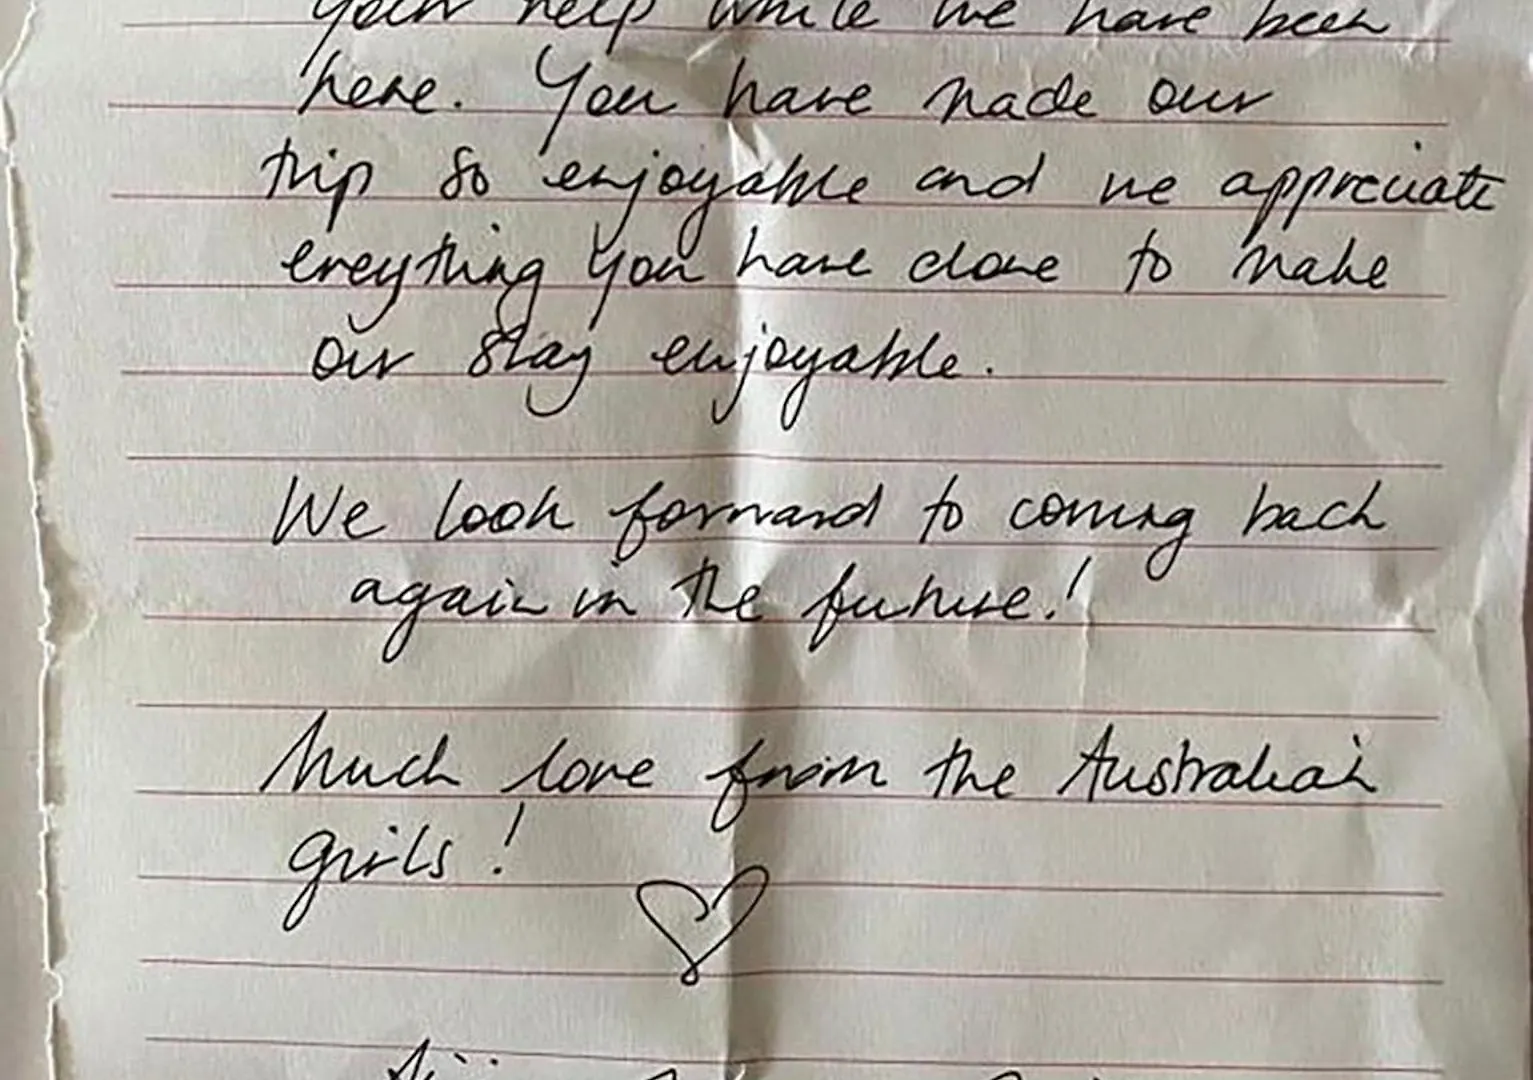 your help while we have been
here. You have made our
trip so enjoyable and we appreciate
ereything you have done to make
our stay enjoyable.
We look forward to coming back
again in the future!
Much love from the Australian
girls!